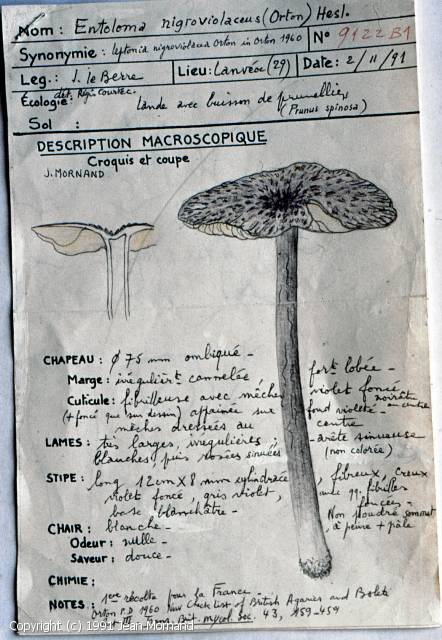 Nom : Entoloma nigroviolaceus (Orton) Hesl.
Synonymie : Leptonia nigroviolacea Orton in Orton 1960 N° 9122B1
Leg. : J. le Berre Lieu : Lanvéoc (29) Date : 2/11/91
det. Régis Courtec.
Écologie : lande avec buisson de prunelliers
(Prunus spinosa)
Sol :
DESCRIPTION MACROSCOPIQUE
Croquis et coupe
J. MORNAND
CHAPEAU : Ø 75 mm ombiqué - fort lobée -
Marge : irrégulièrt cannelée, violet foncé noirâtre
Cuticule : fibrilleuse avec mèches fond violeté au centre
(+ foncé que sur dessin) affainée sur centre
mèches dressées au
LAMES : très larges, irregulières, - arête sinueuse
blanches, puis rosées sinuées (non colorée)
STIPE : long 12cm X 8 mm cylindracé, fibreux, creux
violet foncé, gris violet, avec qq. fibrilles
base blanchâtre - foncées -
CHAIR : blanche - Non poudré sommet
Odeur : nulle - à peine + pâle
Saveur : douce -
CHIMIE :
NOTES : 1ère récolte pour la France
Orton P.D 1960 New Check list of British Agarics and Bolets
Trans. Brit. mycol. Soc. 43, 159-459
Copyright (c) 1991 Jean Mornand